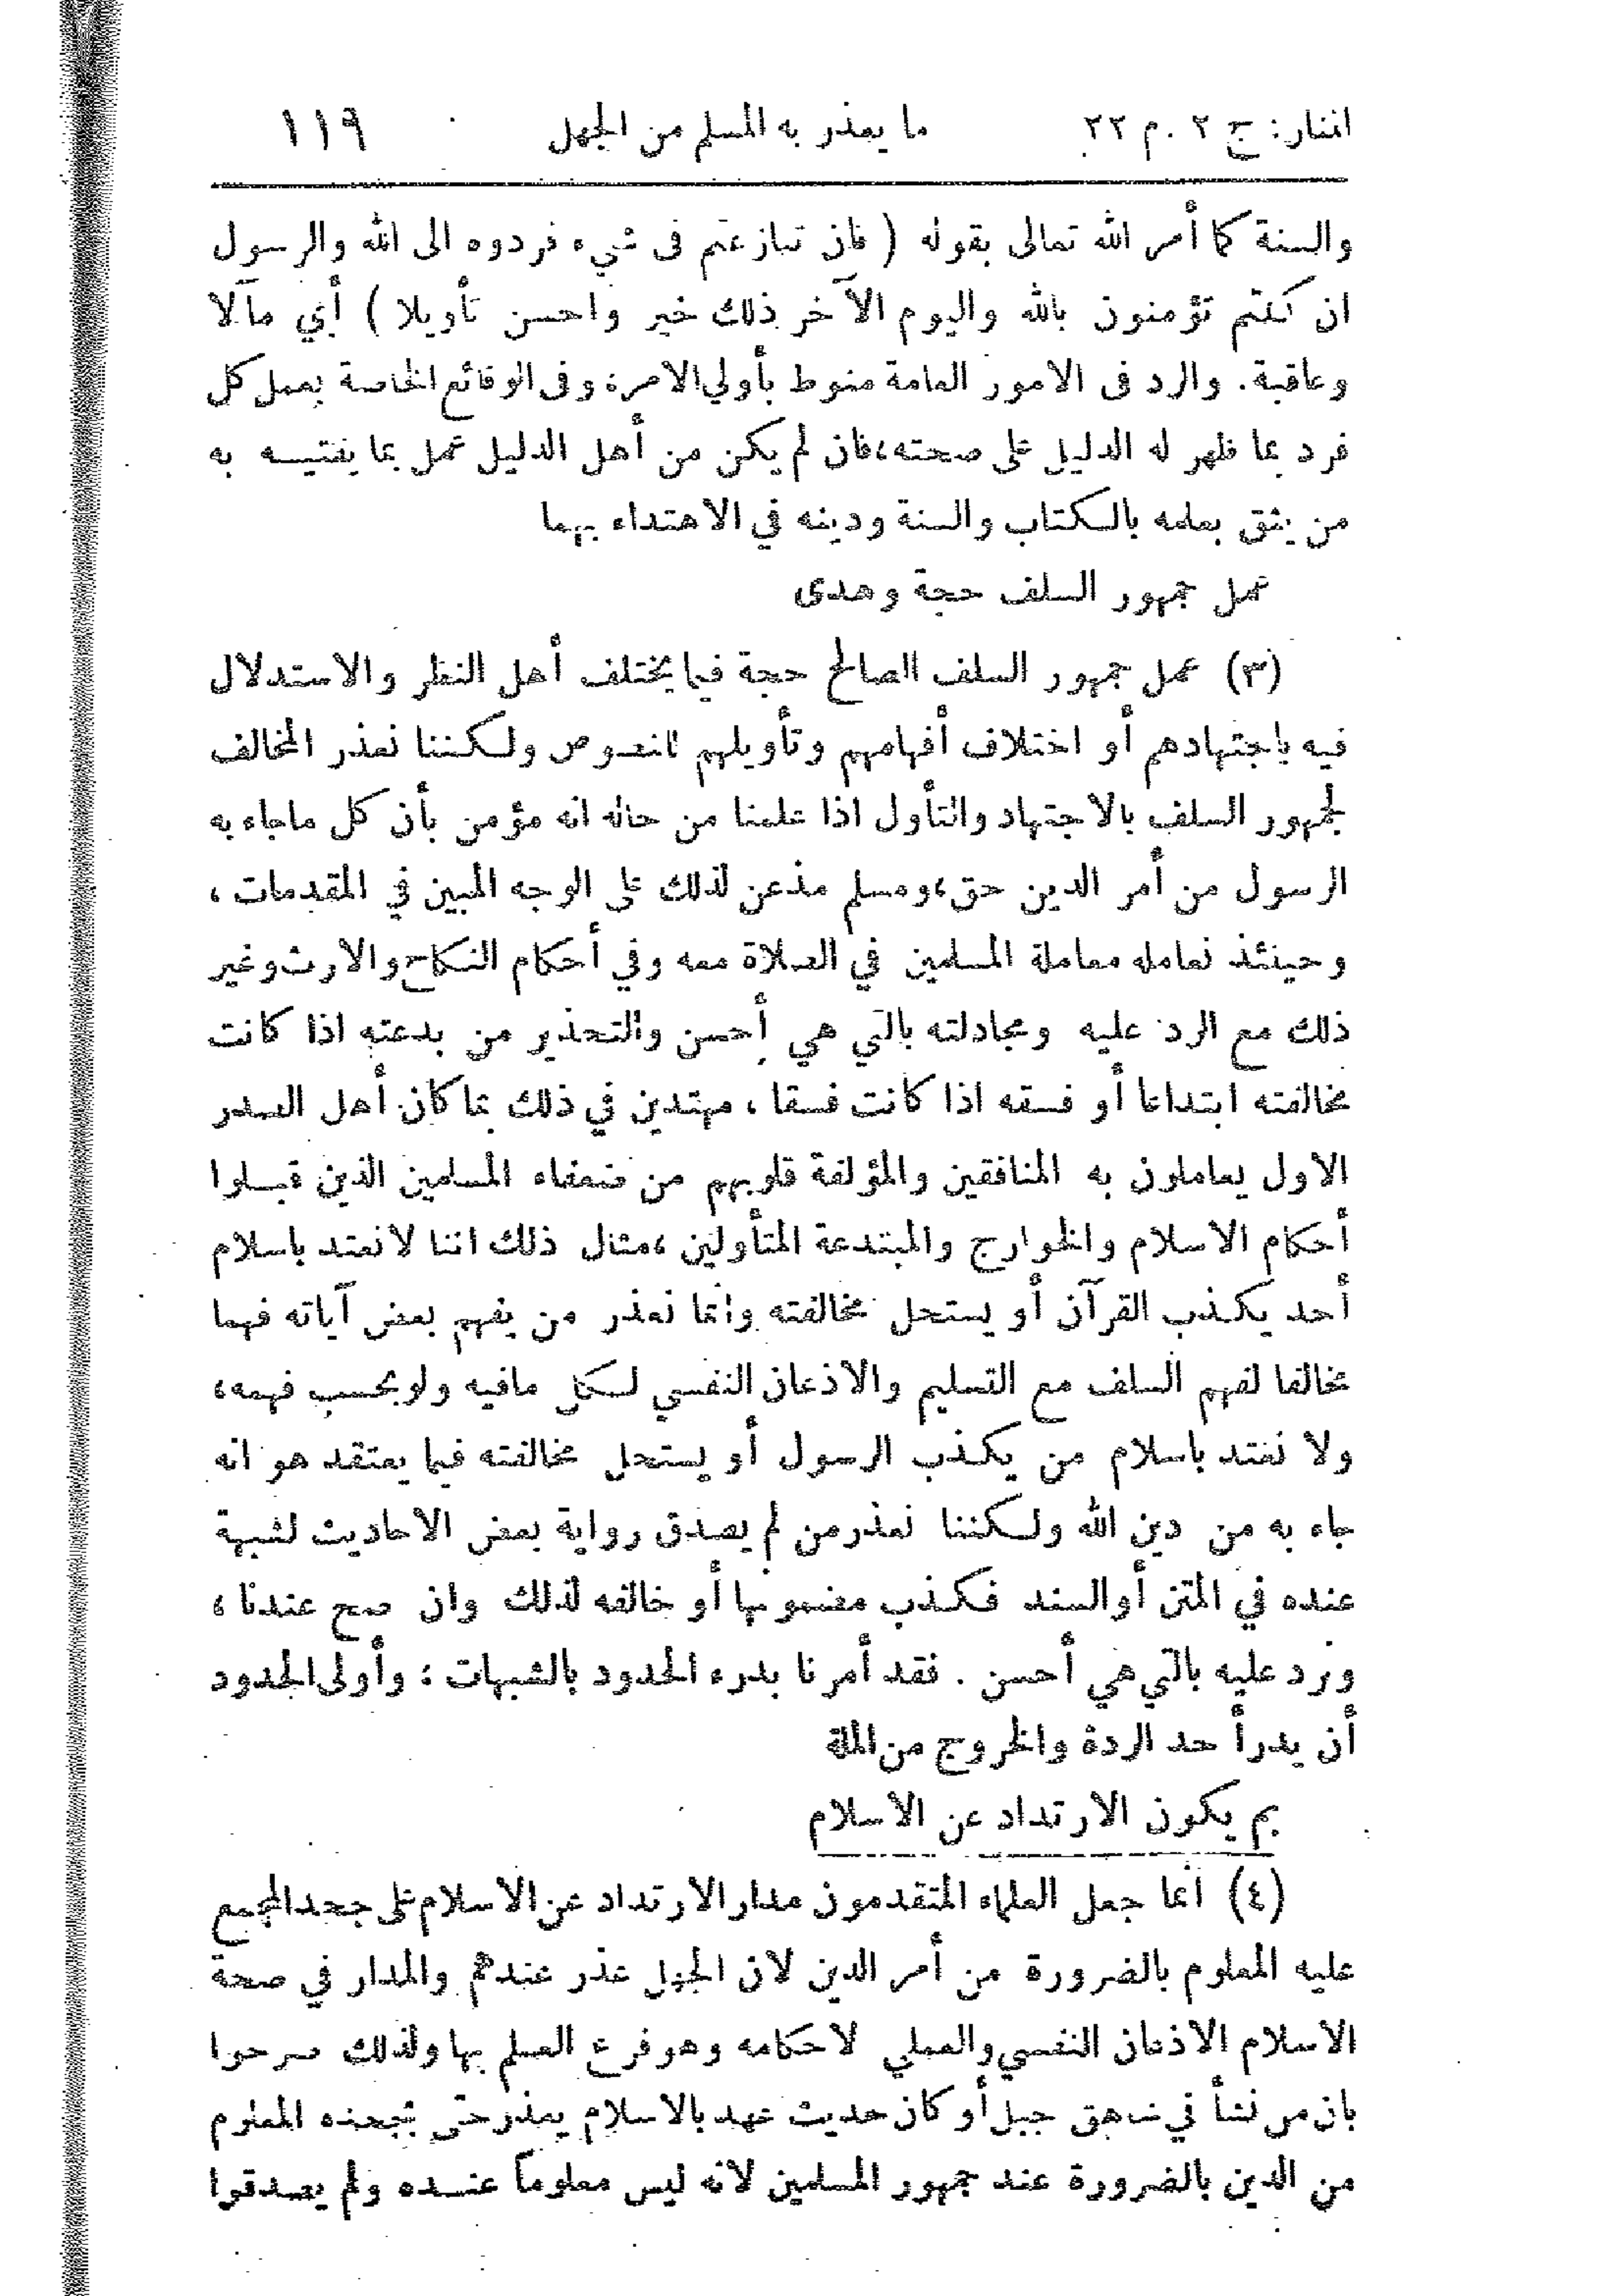 المنار: ج ٢ . م ٢٢ ما يعذر به المسلم من الجهل ١١٩
والسنة كما أمر الله تعالى بقوله ( فان تنازعتم فى شيء فردوه الى الله والرسول
ان كنتم تؤمنون بالله واليوم الآخر ذلك خير واحسن تأويلا ) أي مآلا
وعاقبة. والرد فى الامور العامة منوط بأولي الامر، وفى الوقائع الخاصة يعمل كل
فرد بما ظهر له الدليل على صحته، فان لم يكن من أهل الدليل عمل بما يفتيه به
من يثق بعلمه بالكتاب والسنة ودينه في الاهتداء بهما
عمل جمهور السلف حجة وهدى
(٣) عمل جمهور السلف الصالح حجة فيما يختلف أهل النظر والاستدلال
فيه باجتهادهم أو اختلاف أفهامهم وتأويلهم للنصوص ولكننا نعذر المخالف
لجمهور السلف بالاجتهاد والتأول اذا علمنا من حاله انه مؤمن بأن كل ماجاء به
الرسول من أمر الدين حق، ومسلم مذعن لذلك على الوجه المبين في المقدمات ،
وحينئذ نعامله معاملة المسلمين في الصلاة معه وفي أحكام النكاح والارث وغير
ذلك مع الرد عليه ومجادلته بالتي هي أحسن والتحذير من بدعته اذا كانت
مخالفته ابتداعا أو فسقه اذا كانت فسقا ، مهتدين في ذلك بما كان أهل الصدر
الاول يعاملون به المنافقين والمؤلفة قلوبهم من ضعفاء المسلمين الذين قبلوا
أحكام الاسلام والخوارج والمبتدعة المتأولين، مثال ذلك اننا لا نعتد باسلام
أحد يكذب القرآن أو يستحل مخالفته وانما نعذر من يفهم بعض آياته فهما
مخالفا لفهم السلف مع التسليم والاذعان النفسي لكل مافيه ولو بحسب فهمه،
ولا نعتد باسلام من يكذب الرسول أو يستحل مخالفته فيما يعتقد هو انه
جاء به من دين الله ولكننا نعذر من لم يصدق رواية بعض الاحاديث لشبهة
عنده في المتن أو السند فكذب مضمونها أو خالفه لذلك وان صح عندنا ،
ونرد عليه بالتي هي أحسن . فقد أمرنا بدرء الحدود بالشبهات ؛ وأولى الحدود
أن يدرأ حد الردة والخروج من الملة
بم يكون الارتداد عن الاسلام
(٤) انما جعل العلماء المتقدمون مدار الارتداد عن الاسلام على جحد المجمع
عليه المعلوم بالضرورة من أمر الدين لان الجهل عذر عندهم والمدار في صحة
الاسلام الاذعان النفسي والعملي لاحكامه وهو فرع العلم بها ولذلك صرحوا
بان من نشأ في شاهق جبل أو كان حديث عهد بالاسلام يعذر حتى بجحده المعلوم
من الدين بالضرورة عند جمهور المسلمين لانه ليس معلوماً عنده ولم يصدقوا